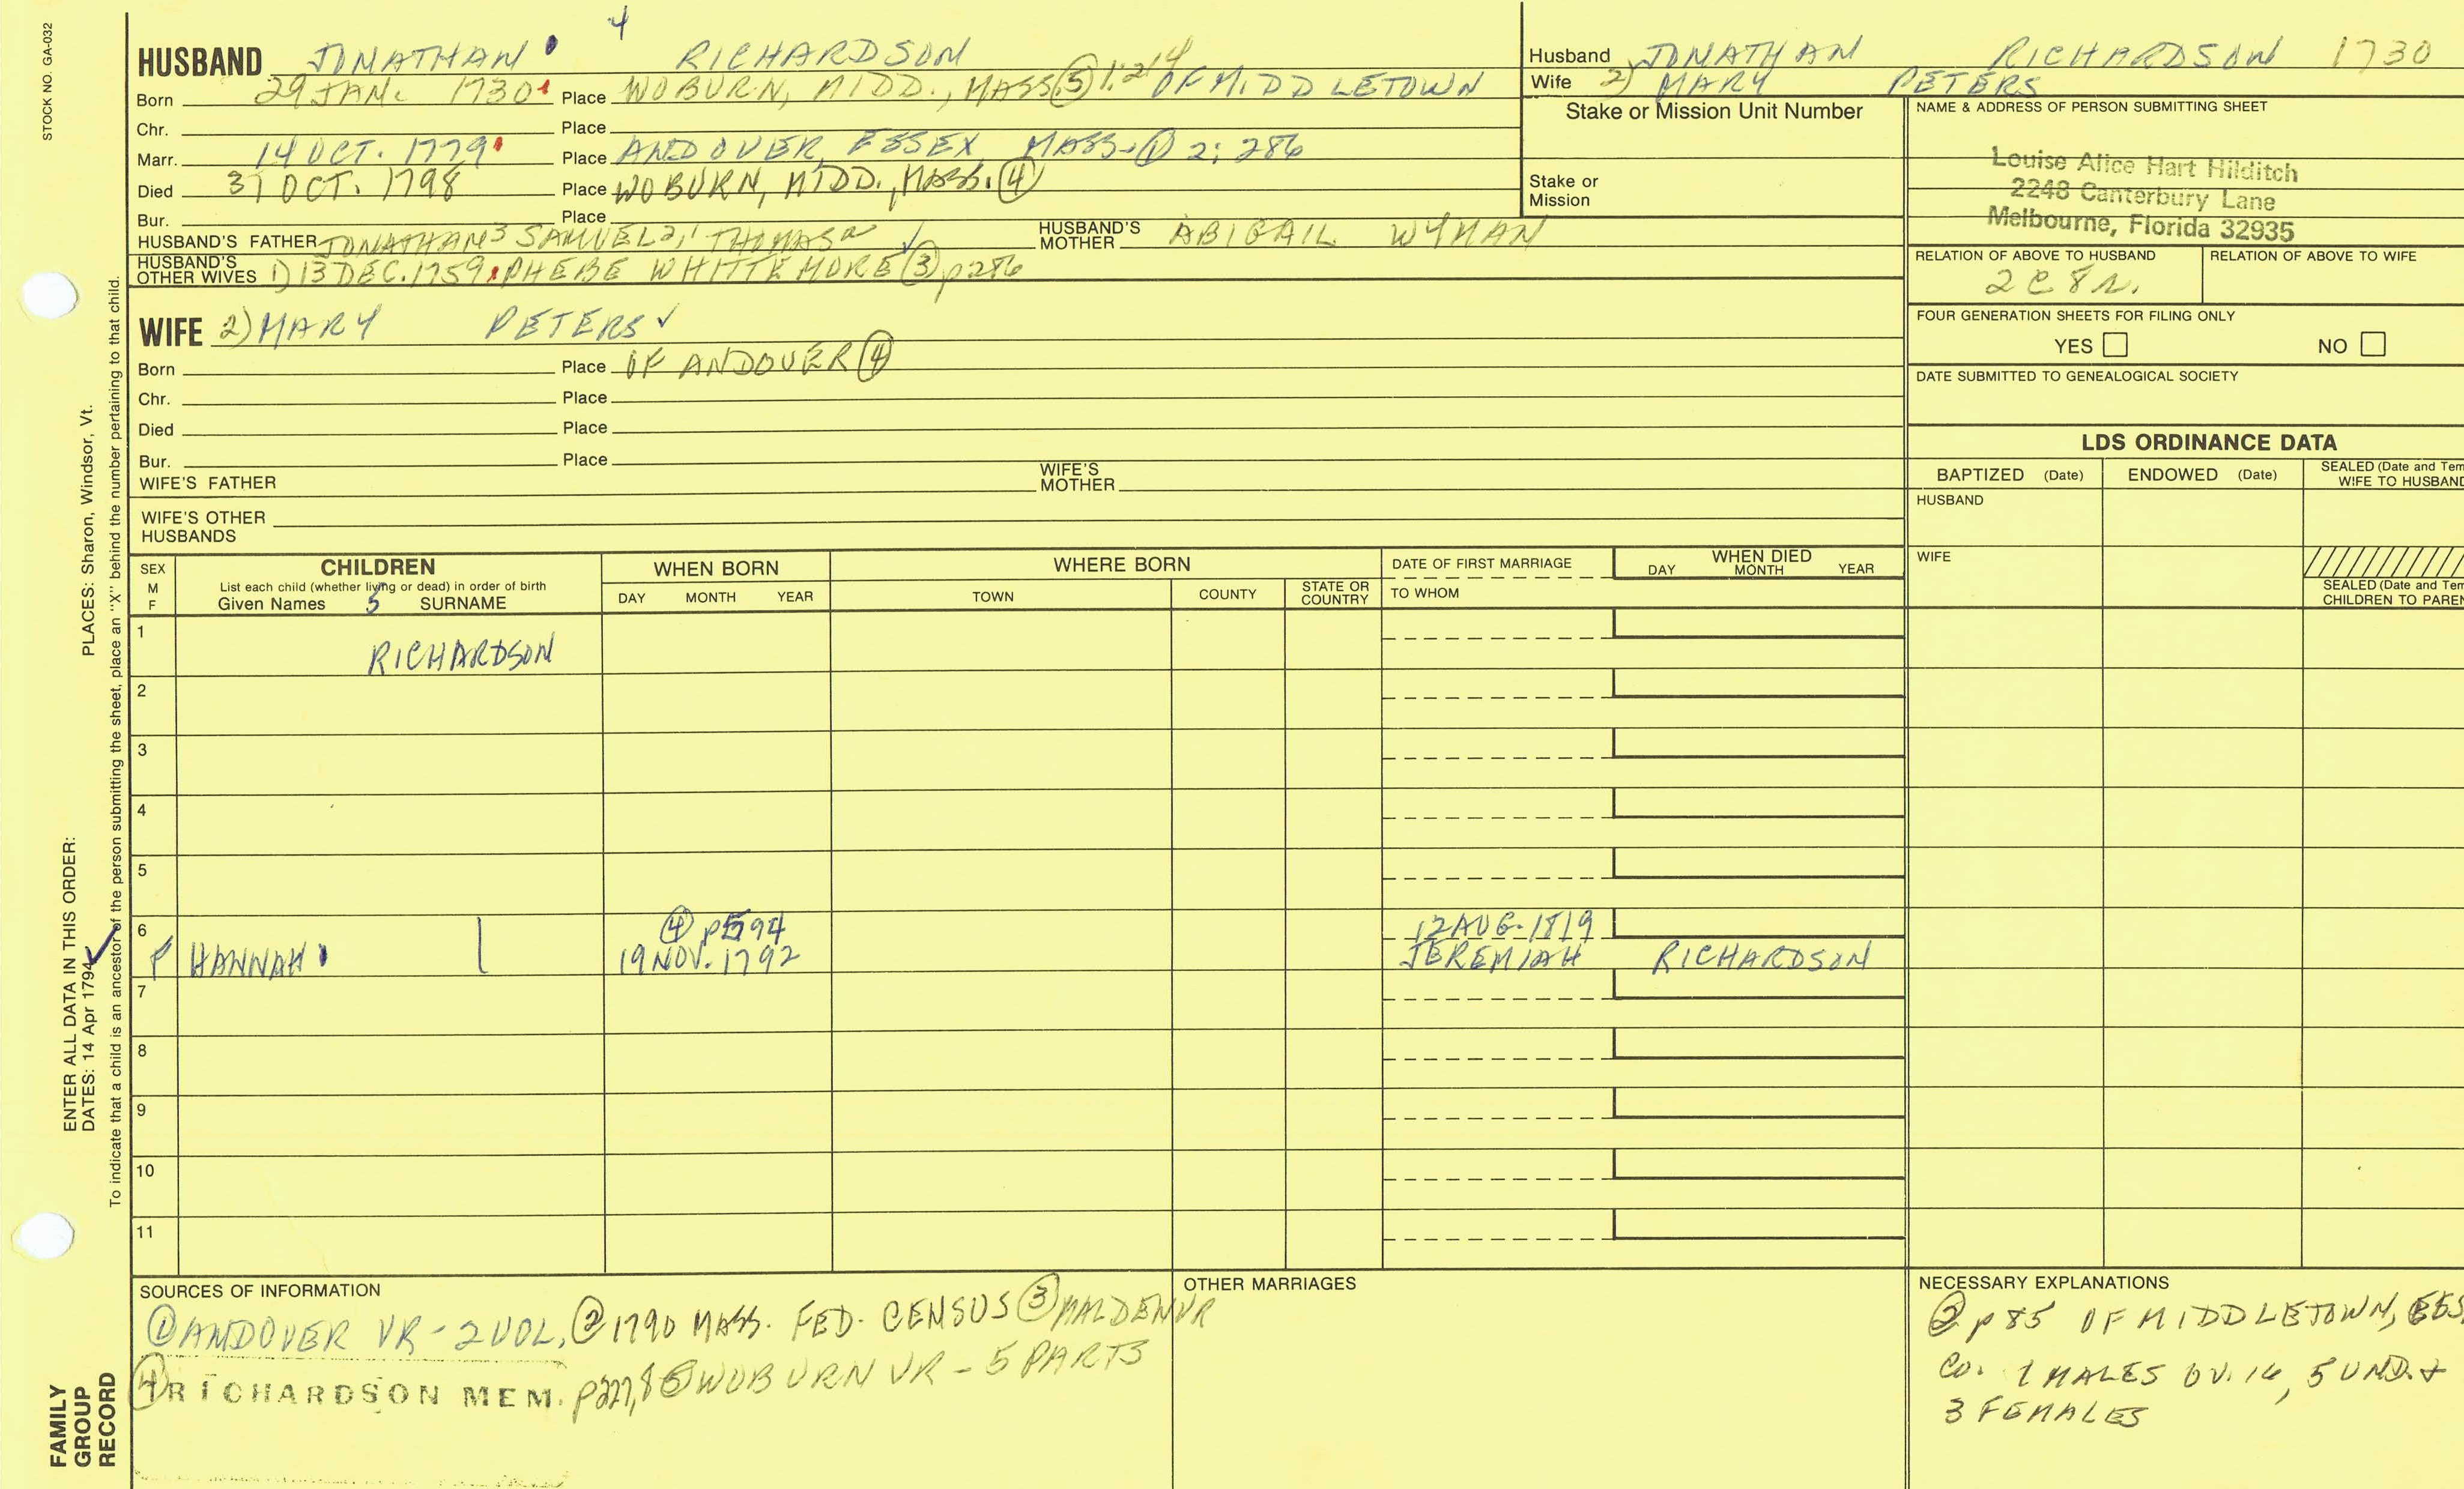 STOCK NO. GA-032
4
HUSBAND JONATHAN RICHARDSON
Born 29 JAN. 1730 Place WOBURN, MIDD., MASS. ⑤ 1:214 OF MIDDLETOWN
Chr. Place
Marr. 14 OCT. 1779 Place ANDOVER, ESSEX, MASS. ① 2:286
Died 31 OCT. 1798 Place WOBURN, MIDD., MASS. ④
Bur. Place
HUSBAND'S FATHER JONATHAN 3 SAMUEL 2, 1 THOMAS ✓ HUSBAND'S MOTHER ABIGAIL WYMAN
HUSBAND'S OTHER WIVES 1) 13 DEC. 1759 PHEBE WHITTEMORE ③ p286
Husband JONATHAN RICHARDSON 1730
Wife 2) MARY PETERS
Stake or Mission Unit Number
Stake or
Mission
NAME & ADDRESS OF PERSON SUBMITTING SHEET
Louise Alice Hart Hilditch
2248 Canterbury Lane
Melbourne, Florida 32935
RELATION OF ABOVE TO HUSBAND RELATION OF ABOVE TO WIFE
2C8R.
FOUR GENERATION SHEETS FOR FILING ONLY
YES NO
DATE SUBMITTED TO GENEALOGICAL SOCIETY
WIFE 2) MARY PETERS ✓
Born Place OF ANDOVER ④
Chr. Place
Died Place
Bur. Place
WIFE'S FATHER WIFE'S MOTHER
WIFE'S OTHER
HUSBANDS
LDS ORDINANCE DATA
BAPTIZED (Date) ENDOWED (Date) SEALED (Date and Tem
WIFE TO HUSBAND
HUSBAND
WIFE
SEALED (Date and Tem
CHILDREN TO PAREN
SEX
M
F
CHILDREN
List each child (whether living or dead) in order of birth
Given Names 5 SURNAME
WHEN BORN
DAY MONTH YEAR
WHERE BORN
TOWN COUNTY STATE OR COUNTRY
DATE OF FIRST MARRIAGE
TO WHOM
WHEN DIED
DAY MONTH YEAR
1 RICHARDSON
2
3
4
5
6 ④ p594 12 AUG. 1819
F HANNAH 19 NOV. 1792 JEREMIAH RICHARDSON
7
8
9
10
11
SOURCES OF INFORMATION
① ANDOVER VR - 2 VOL, ② 1790 MASS. FED. CENSUS ③ MALDEN VR
④ RICHARDSON MEM. p227,8 ⑤ WOBURN VR - 5 PARTS
OTHER MARRIAGES
NECESSARY EXPLANATIONS
② p85 OF MIDDLETOWN, ESS
CO. 1 MALES OV. 16, 5 UND. +
3 FEMALES
PLACES: Sharon, Windsor, Vt.
ENTER ALL DATA IN THIS ORDER:
DATES: 14 Apr 1794 ✓
To indicate that a child is an ancestor of the person submitting the sheet, place an "X" behind the number pertaining to that child.
FAMILY
GROUP
RECORD